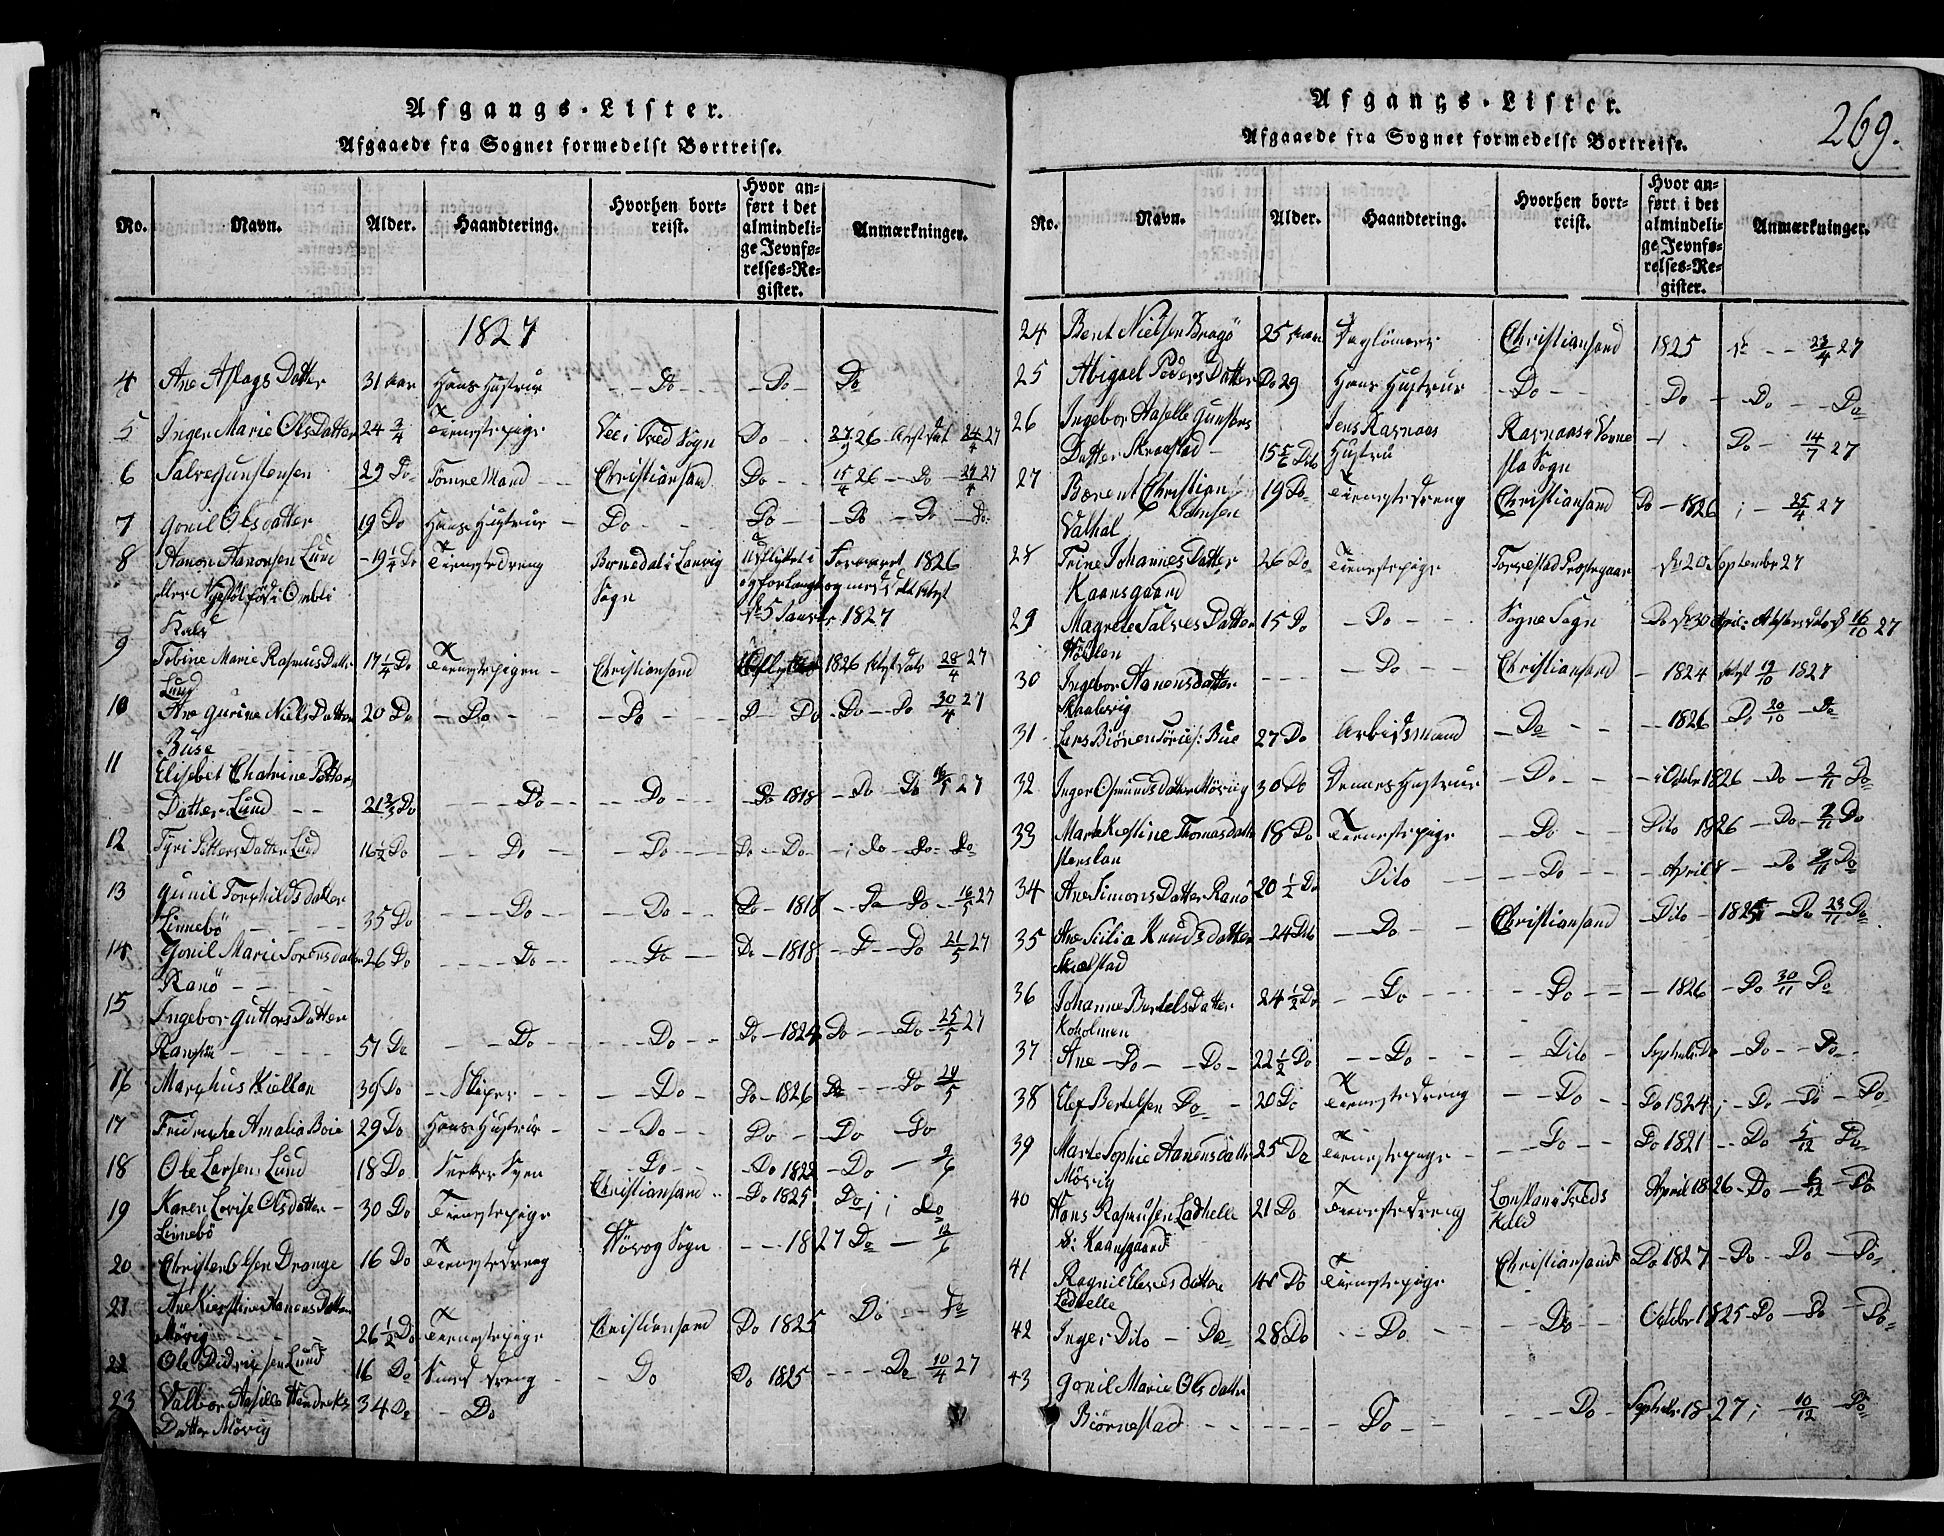 Afgangs-Lister.
Afgaaede fra Sognet formedelst Bortreise.
No. Navn. Alder. Haandtering. Hvorhen bortreist. Hvor anført i det almindelige Jevnførelses-Register. Anmærkninger.
1827
4 Ane Aslags Datter 31 Aar Hans Hustrue Do Do Do
5 Inger Marie Ols Datter 24 3/4 Tienestepige Vee i Tred Sogn Do 27/3 26 24/4 27
6 Salve Gunstensen 29 Do Tømre Mand Christiansand Do 15/4 26 Do 24/4 27
7 Gonil Olsdatter 19 Do Hans Hustrue Do Do Do Do Do
8 Aanon Aanonsen Lund 19 1/4 Do Tienestedreng Bernedal i Lanvig 1826
Sogn
5 Januar 1827
9 Tobine Marie Rasmus Datter 17 1/4 Do Tienestepigen Christiansand 1826 28/4 27
Lund
10 Ane Gurine Niels Datter 20 Do Do Do D Do Do Do 30/4 27
Buse
11 Elisebet Chatrine Petter
Datter Lund 21 2/3 Do Do Do Do 1818 Do Do 27
12 Tyri Petters Datter Lund 16 1/2 Do Do Do Do Do Do Do Do
13 Gunil Torkilds datter
Linnebö 35 Do Do Do Do 1818 Do Do 16/5 27
14 Gonil Marie Sorensdatter 26 Do Do Do Do 1818 D Do 21/5 27
Ranö
15 Ingebor Guttors Datter
57 Do Do Do Do 1824 Do Do 25/5 27
16 Marchus Kiellan 39 Do Skiper Do Do 1826 Do Do 29/5
17 Fridriche Amalia Boie 29 Do Hans Hustrue Do Do Do Do
18 Ole Larsen Lund 18 Do Do Do 1822 Do 9/6
19 Karen Lovise Olsdatter 30 Do Tienestepige Christiansand Do 1825 Do Do
Linnebö
20 Christen Olsen Drange 16 Do Tienestedreng Hövog Sogn 1827 Do 12/6
21 Ane Kierstine Aanens Datter
Mörig 26 1/2 Do Tienestepige Christiansand Do 1825 Do Do
22 Ole Didriksen Lund 16 Do Do Do 1825 Do 10/4 27
23 Valbor Asille Hendreks 34 Do Do
Datter Mövig
Afgangs-Lister.
269.
Afgaaede fra Sognet formedelst Bortreise.
No. Navn. Alder. Haandtering. Hvorhen bortreist. Hvor anført i det almindelige Jevnførelses-Register. Anmærkninger.
24 Bent Nielsen Bragö 25 Aar Christiansand 1825 23/4 27
25 Abigael Peders Datter Do 29 Hans Hustrue Do Do Do Do
26 Ingebor Aaselle Gunsters Jens Ravnaas Ravnaas i Vorne Do 14/7 27
Datter 15 5/6 Dito Hustru sla Sogn
27 Bærent Christian 19 Do Tienestedreng Christiansand Do 1826 25/4 27
28 Trine Johannes Datter 26 Do Tienestepige 20 September 27
Kaansgaard
29 Magrete Salves Datter 15 Do Do Sogne Sogn Do 30 April 16/10 27
30 Ingebor Aanensdatter Do Christiansand 1824 19/10 1827
Skaalevig
31 Lars Biören Bue 27 Do Arbeidsmand Do 1826 D 20/10 Do
32 Inger Osmunds datter Mövig 30 Do Hustrue Do i Octobr 1826 Do 2/11 Do
33 Marte Kistine Thomasdatter 18 Do Tienestepige Do Dito 1826 Do 2/11 Do
34 Ane Simons Datter Ranö 20 1/2 Do Dito Do April Do 9/11 Do
35 Ane Sicilia Knuds datter 24 Dito Do Christiansand Dito 1825 Do 23/11 Do
36 Johanne Bertels Datter 24 1/2 Do Do Do 1826 Do 30/11 Do
Koholmen
37 Ane Do Do 22 1/2 Do Do Dito Do Do Do
38 Elef Bertelsen Do 20 Do Tienestedreng Do Do 1824 Do Do Do
39 Marte Sophie Aanensdatter 25 Do Tienestepige Do Do 1821 Do 5/12 Do
Mövig
40 Hans Rasmusen Ladhelle 21 Do Tienestedreng April 1826 Do 6/12 Do
Kaansgaard
41 Ragnil Elevesdatter Do Tienestepige Christiansand Do 1827 Do Do Do
Ladhelle
42 Inger Dito Do 28 Do Do Do Octobr 1825 Do Do Do
43 Gonil Marie Olsdatter
Biörnestad Do Do 1827 10/12 Do